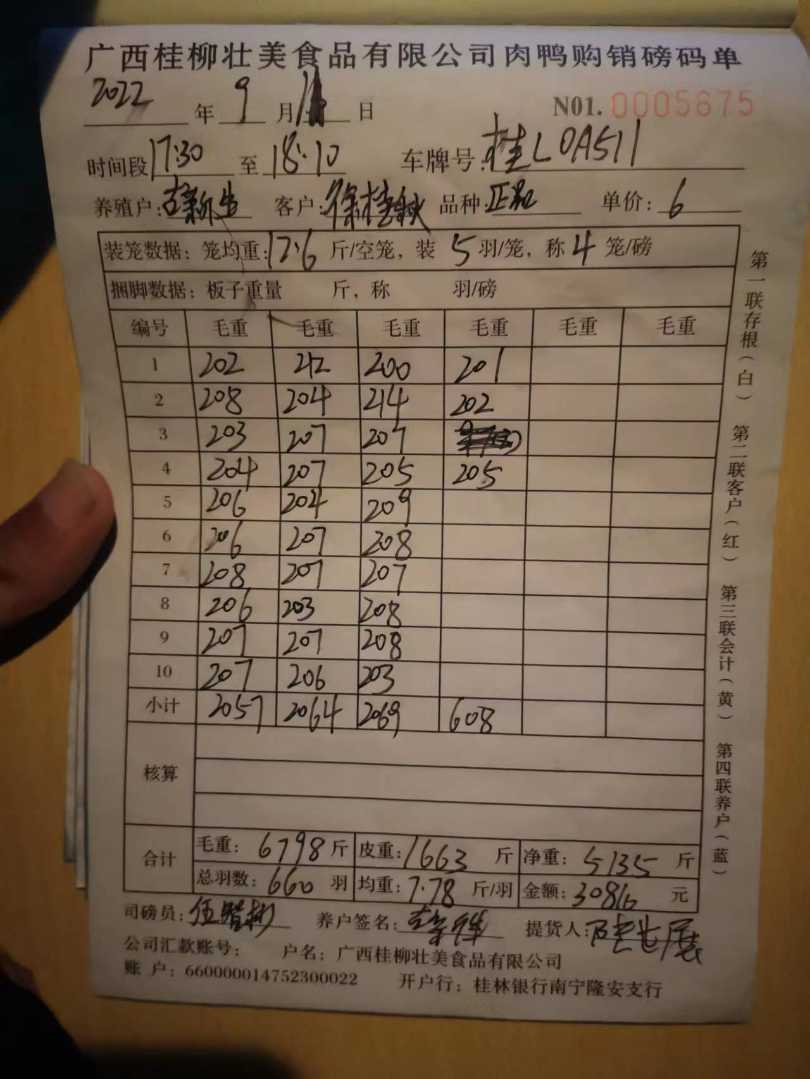 广西桂柳壮美食品有限公司肉鸭购销磅码单
2022 年 9 月 日 N01. 0005675
时间段 17:30 至 18:10 车牌号: 桂L0A511
养殖户: 客户: 徐桂秋 品种: 正品 单价: 6
装笼数据: 笼均重: 12.6 斤/空笼, 装 5 羽/笼, 称 4 笼/磅
捆脚数据: 板子重量 斤, 称 羽/磅
编号 毛重 毛重 毛重 毛重 毛重 毛重
1 202 212 200 201
2 208 204 214 202
3 203 207 207
4 204 207 205 205
5 206 204 209
6 206 207 208
7 208 207 207
8 206 203 208
9 207 207 208
10 207 206 203
小计 2057 2064 2069 608
核算
合计 毛重: 6798 斤 皮重: 1663 斤 净重: 5135 斤
总羽数: 660 羽 均重: 7.78 斤/羽 金额: 30810 元
司磅员: 养户签名: 提货人:
公司汇款账号: 户名: 广西桂柳壮美食品有限公司
账 户: 660000014752300022 开户行: 桂林银行南宁隆安支行
第一联存根(白)
第二联客户(红)
第三联会计(黄)
第四联养户(蓝)